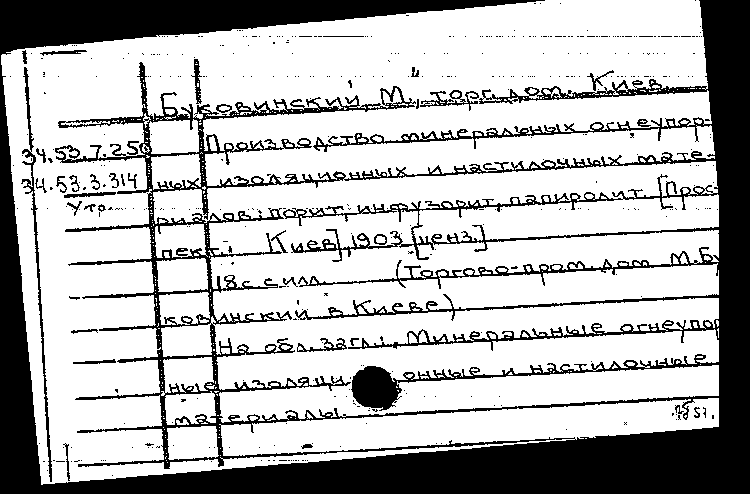 Буковинский, М.", торг. дом. Киев.
34.53.7.250 Производство минеральных огнеупор-
34.53.3.314 ных изоляционных и настилочных мате-
Утр. риалов: порит, инфузорит, папиролит. [Прос-
пект.; Киев], 1903 [ценз.]
18 с. с илл. (Торгово-пром. дом М. Бу
ковинский в Киеве).
На обл. загл.: Минеральные огнеупор
ные изоляционные и настилочные
материалы.